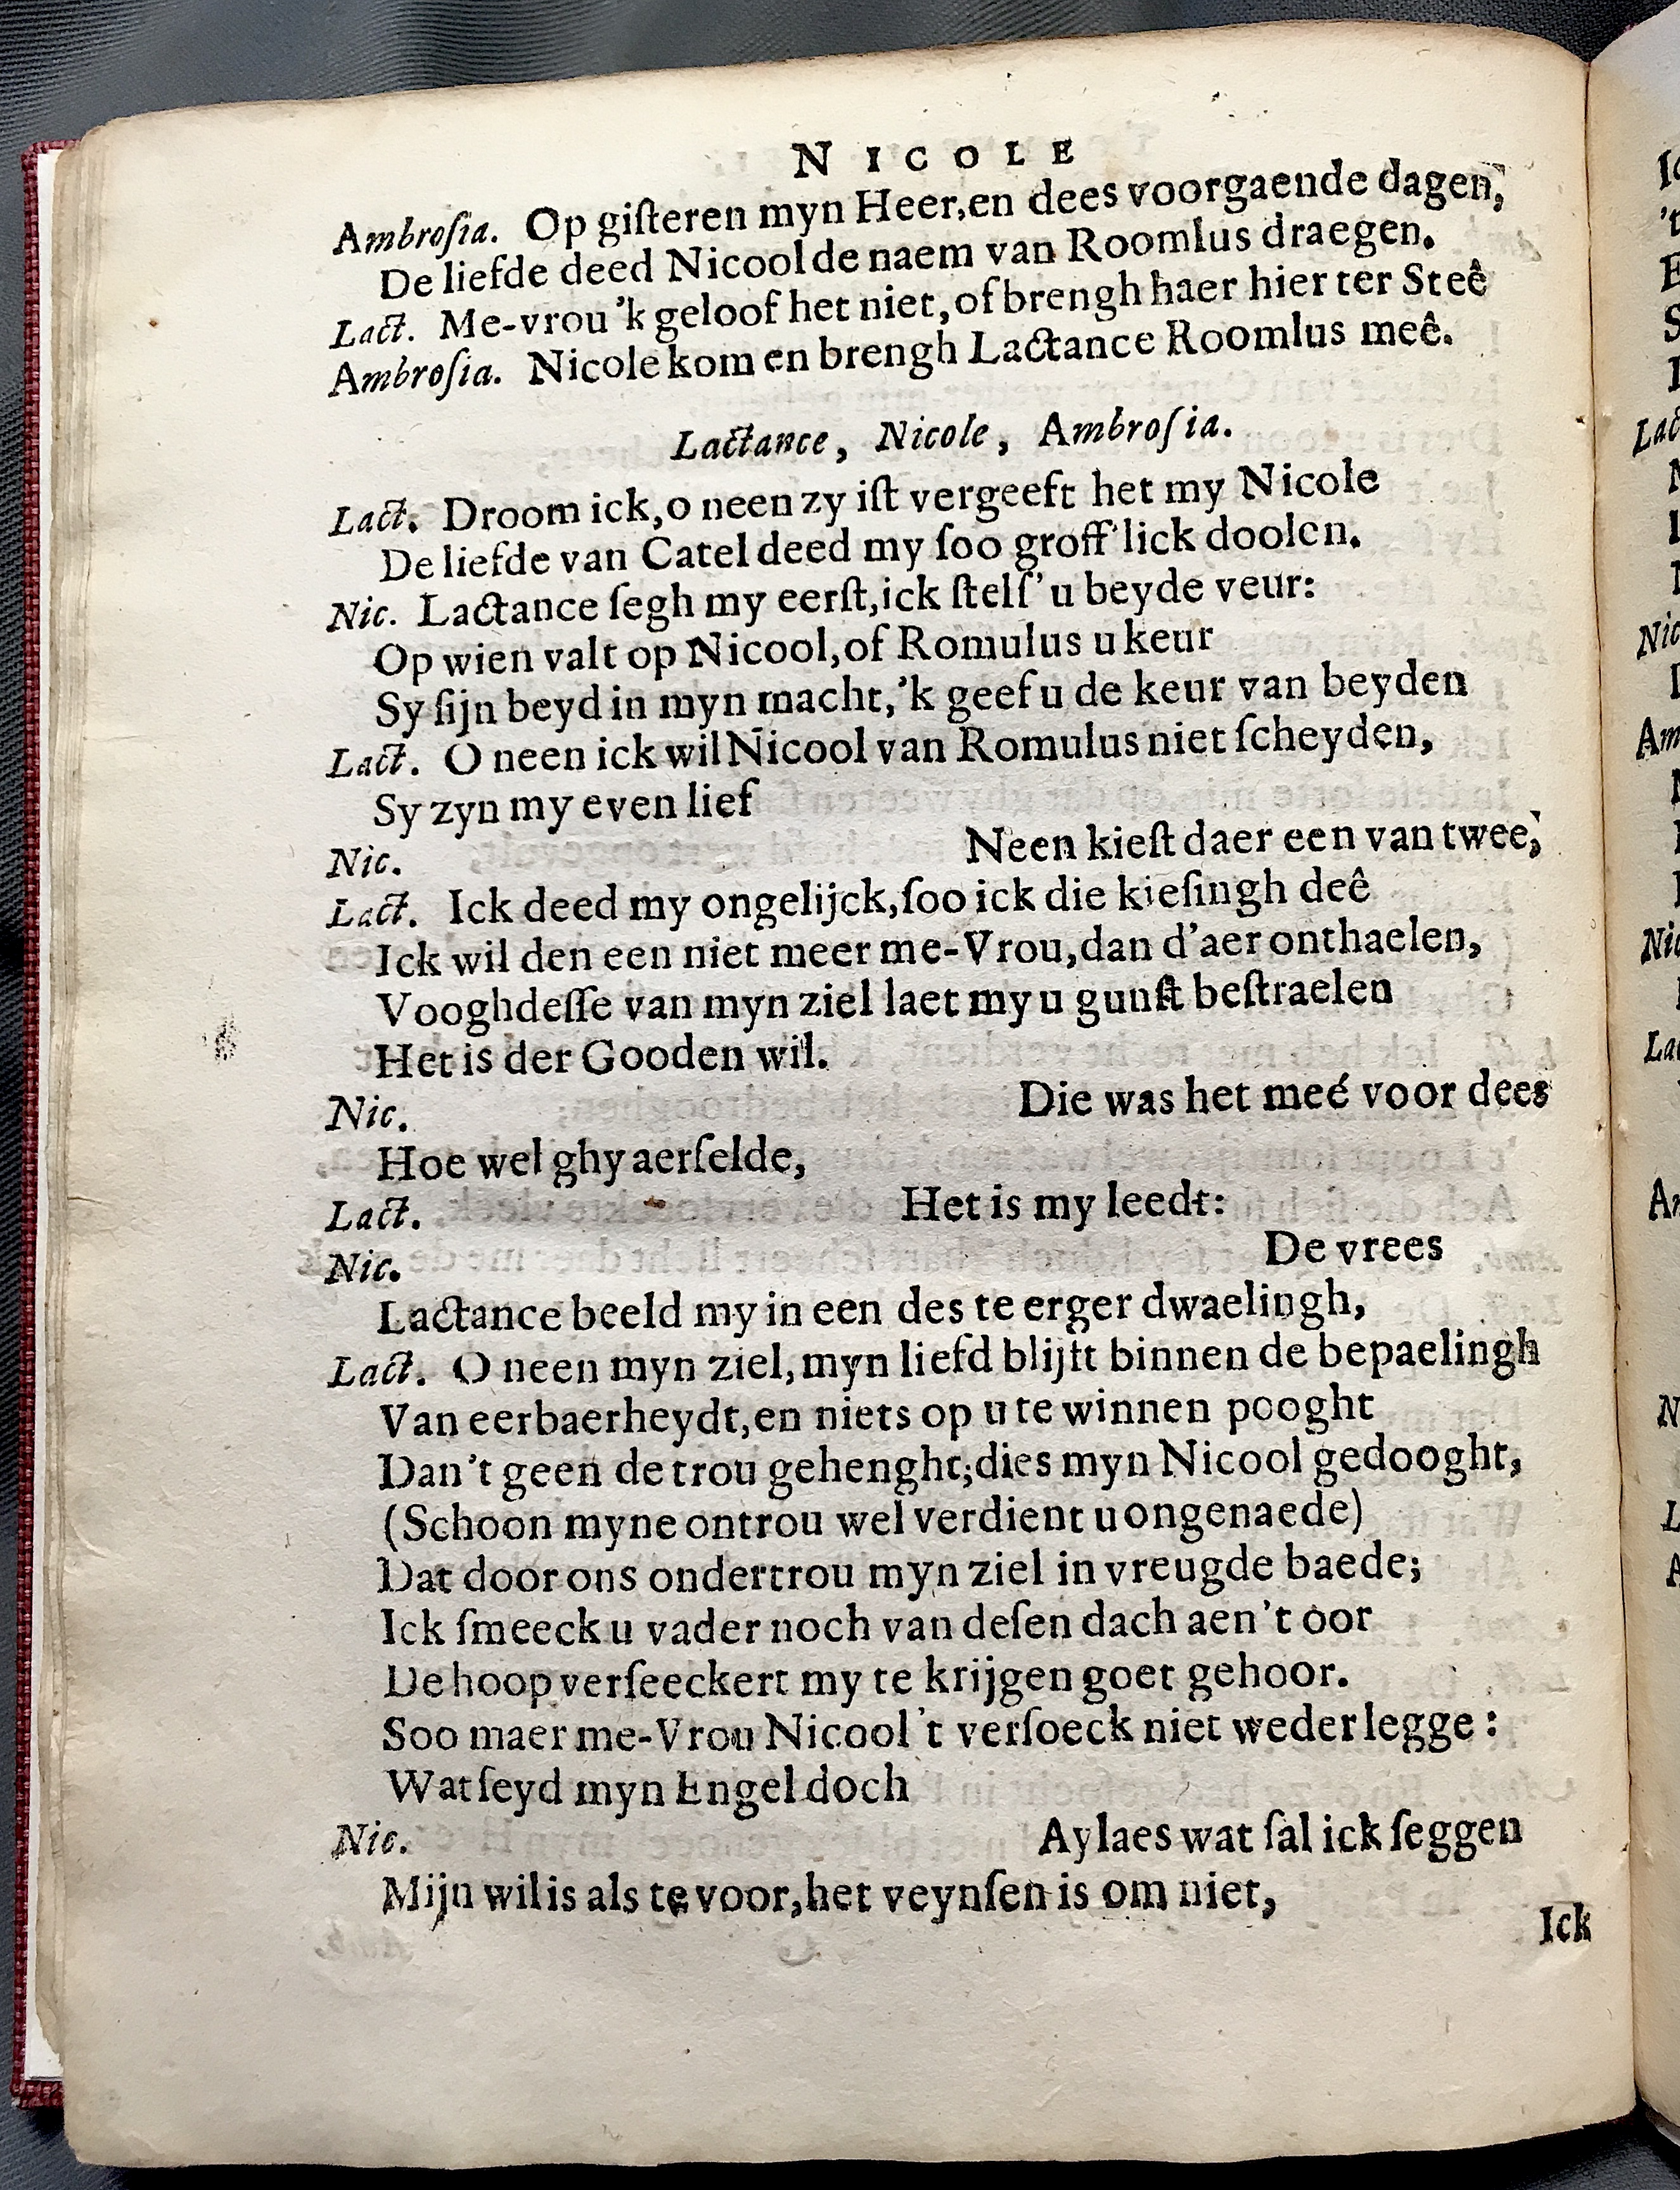 NICOLE
Ambroſia. Op giſteren myn Heer,en dees voorgaende dagen,
De liefde deed Nicool de naem van Roomlus draegen.
Lact. Me-vrou 'k geloof het niet, of brengh haer hier ter Steê
Ambroſia. Nicole kom en brengh Lactance Roomlus meê.
Lactance, Nicole, Ambroſia.
Lact. Droom ick,o neen zy iſt vergeeft het my Nicole
De liefde van Catel deed my ſoo groff'lick doolen.
Nic. Lactance ſegh my eerſt,ick ſtelſ' u beyde veur:
Op wien valt op Nicool,of Romulus u keur
Sy ſijn beyd in myn macht,'k geef u de keur van beyden
Lact. O neen ick wil Nicool van Romulus niet ſcheyden,
Sy zyn my even lief
Nic. Neen kieſt daer een van twee,
Lact. Ick deed my ongelijck,ſoo ick die kieſingh deê
Ick wil den een niet meer me-Vrou,dan d'aer onthaelen,
Vooghdeſſe van myn ziel laet my u gunſt beſtraelen
Het is der Gooden wil.
Nic. Die was het meé voor dees
Hoe wel ghy aerſelde,
Lact. Het is my leedt:
Nic. De vrees
Lactance beeld my in een des te erger dwaelingh,
Lact. O neen myn ziel,myn liefd blijft binnen de bepaelingh
Van eerbaerheydt,en niets op u te winnen pooght
Dan't geen de trou gehenght;dies myn Nicool gedooght,
(Schoon myne ontrou wel verdient u ongenaede)
Dat door ons ondertrou myn ziel in vreugde baede;
Ick ſmeeck u vader noch van deſen dach aen't oor
De hoop verſeeckert my te krijgen goet gehoor.
Soo maer me-Vrou Nicool 't verſoeck niet wederlegge:
Wat ſeyd myn Engel doch
Nic. Aylaes wat ſal ick ſeggen
Mijn wil is als te voor,het veynſen is om niet,
Ick